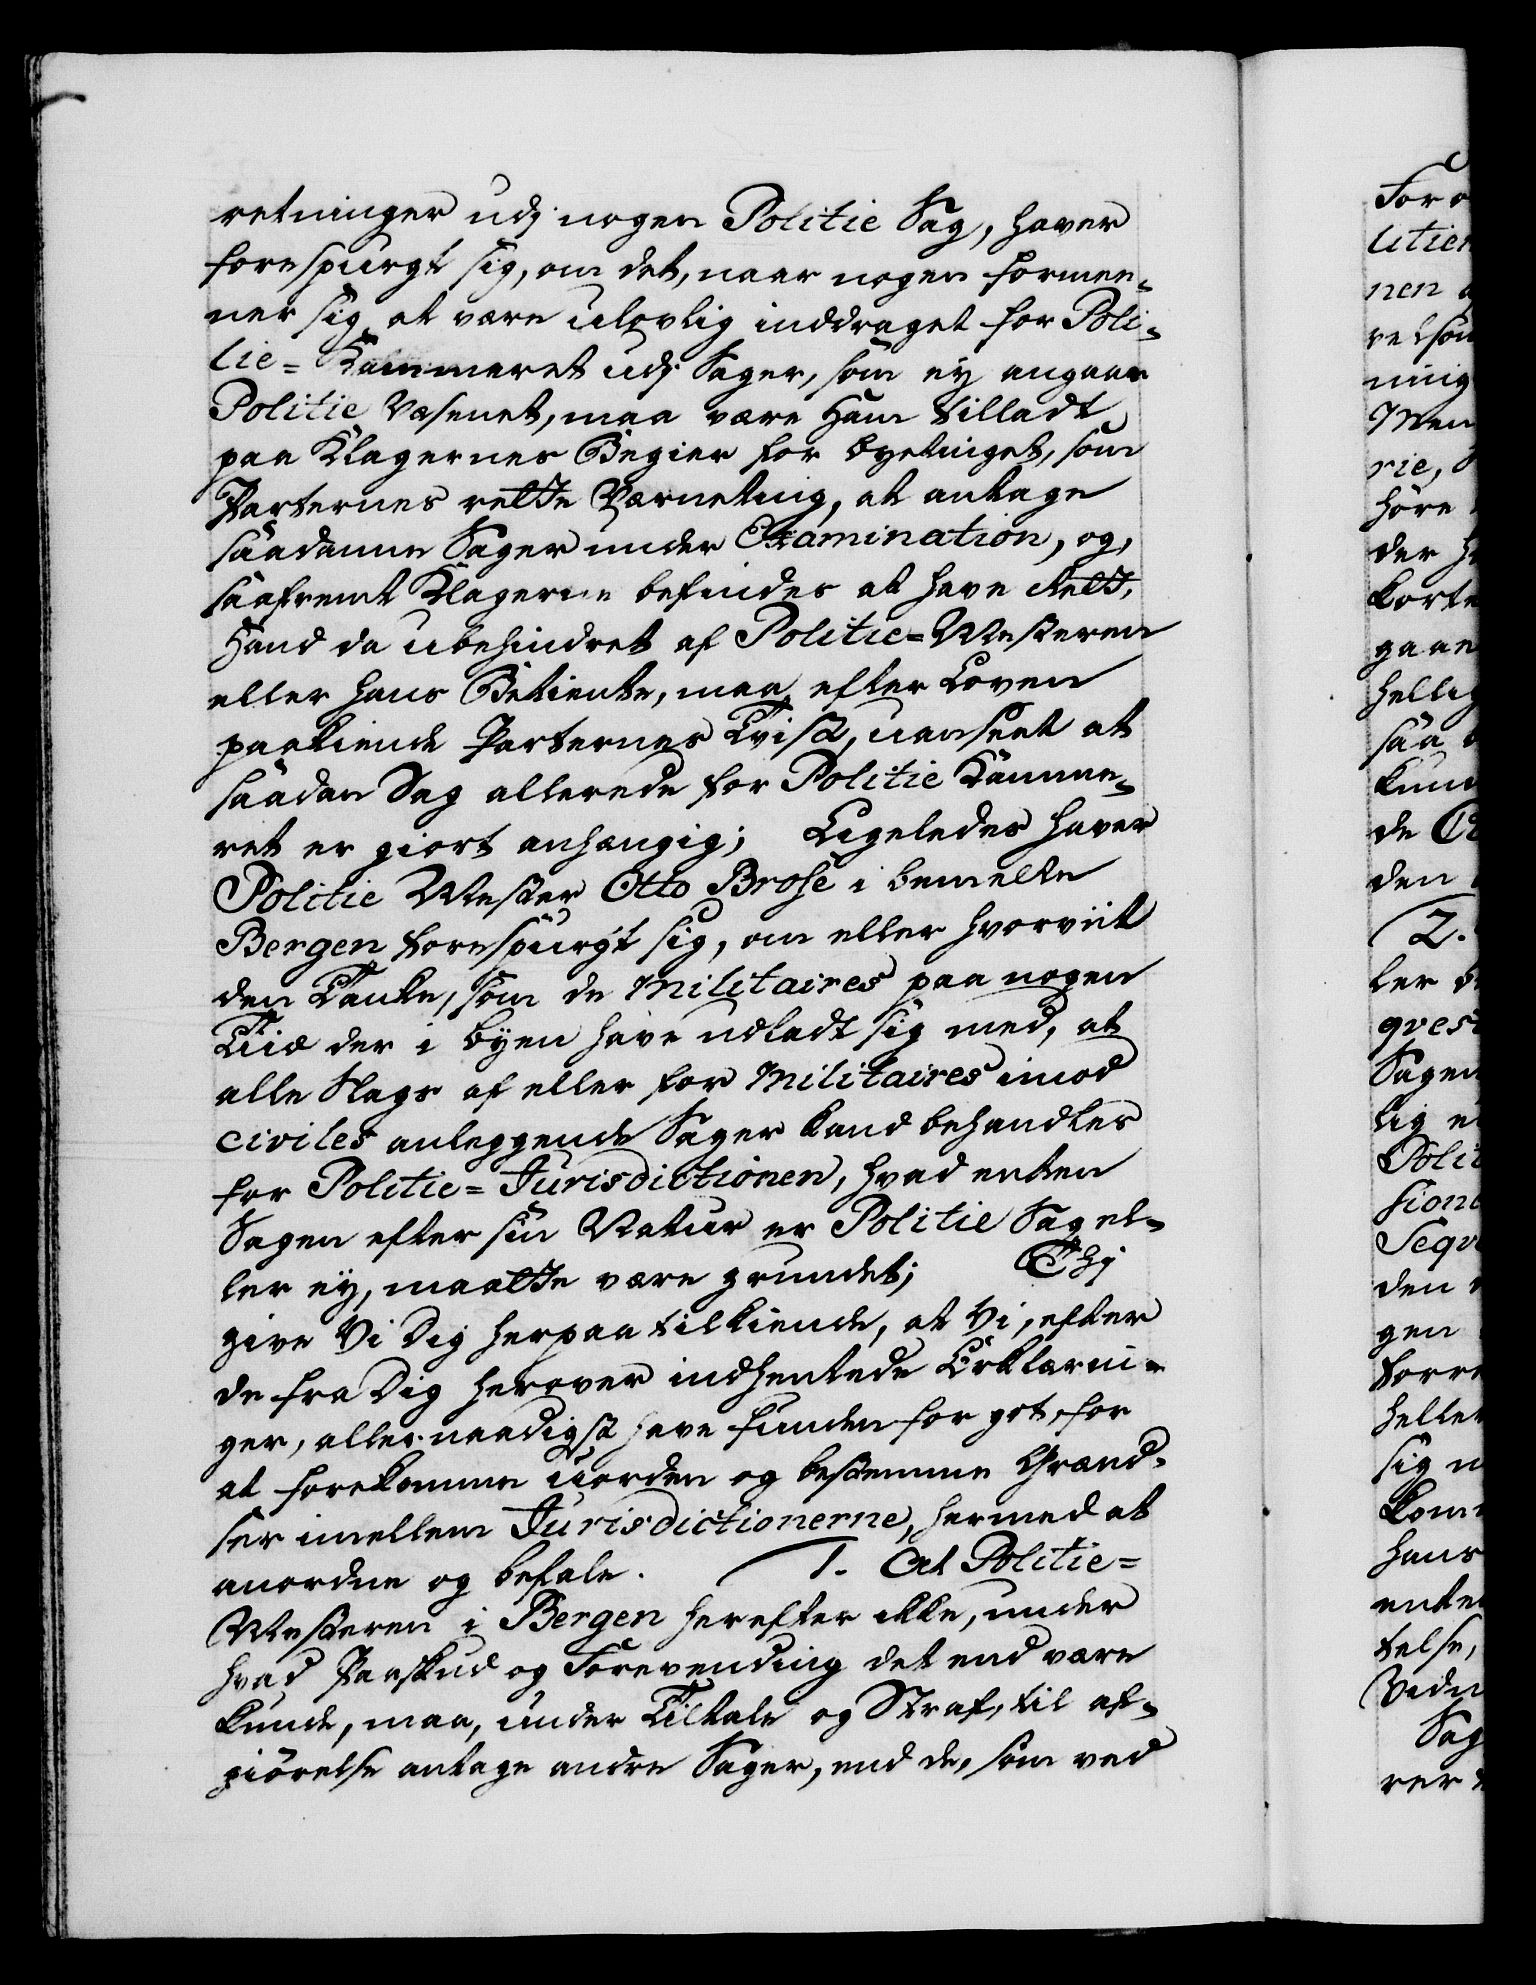 retninger udj nogen Politie Sag, haver
forespurgt sig, om det, naar nogen formee-
ner sig at være ulovlig inddraget for Poli-
tie= Kammeret udj Sager, som ey angaar
Politie Væsenet, maa være Ham tilladt
paa Klagernes Begier for byetinget, som
Parternes rette Værneting, at antage
saadanne Sager under Examination, og,
saafremt Klagerne befindes at have Rett,
Hand da ubehindret af Politie=Mesteren
eller hans Betiente, maa efter Loven
paakiende Parternes Tvist, uanseet at
saadan Sag allerede for Politie Kamme-
ret er giort anhængig; Ligeledes haver
Politie Mester Otto Brose i bemelte
Bergen forespurgt sig, om eller hvorviit
den Tanke, som de Militaires paa nogen
Tiid der i byen have udladt sig med, at
alle Slags af eller for Militaires imod
civiles anleggende Sager kand behandles
for Politie=Jurisdictionen, hvad enten
Sagen efter sin Natur er Politie Sag el-
ler ey, maatte være grundet; Thj
give Vi Dig herpaa tilkiende, at Vi, efter
de fra Dig herover indhentede Erklærin-
ger, allernaadigst have funden for got, for
at forekomme uorden og bestemme Grænd-
ser imellem Jurisdictionerne, hermed at
anordne og befale. 1. At Politie=
Mesteren i Bergen herefter ikke, under
hvad Paaskud og Forevending det end være
kunde, maa, under Tiltale og Straf, til af-
giörelse antage andre Sager, end de, som ved